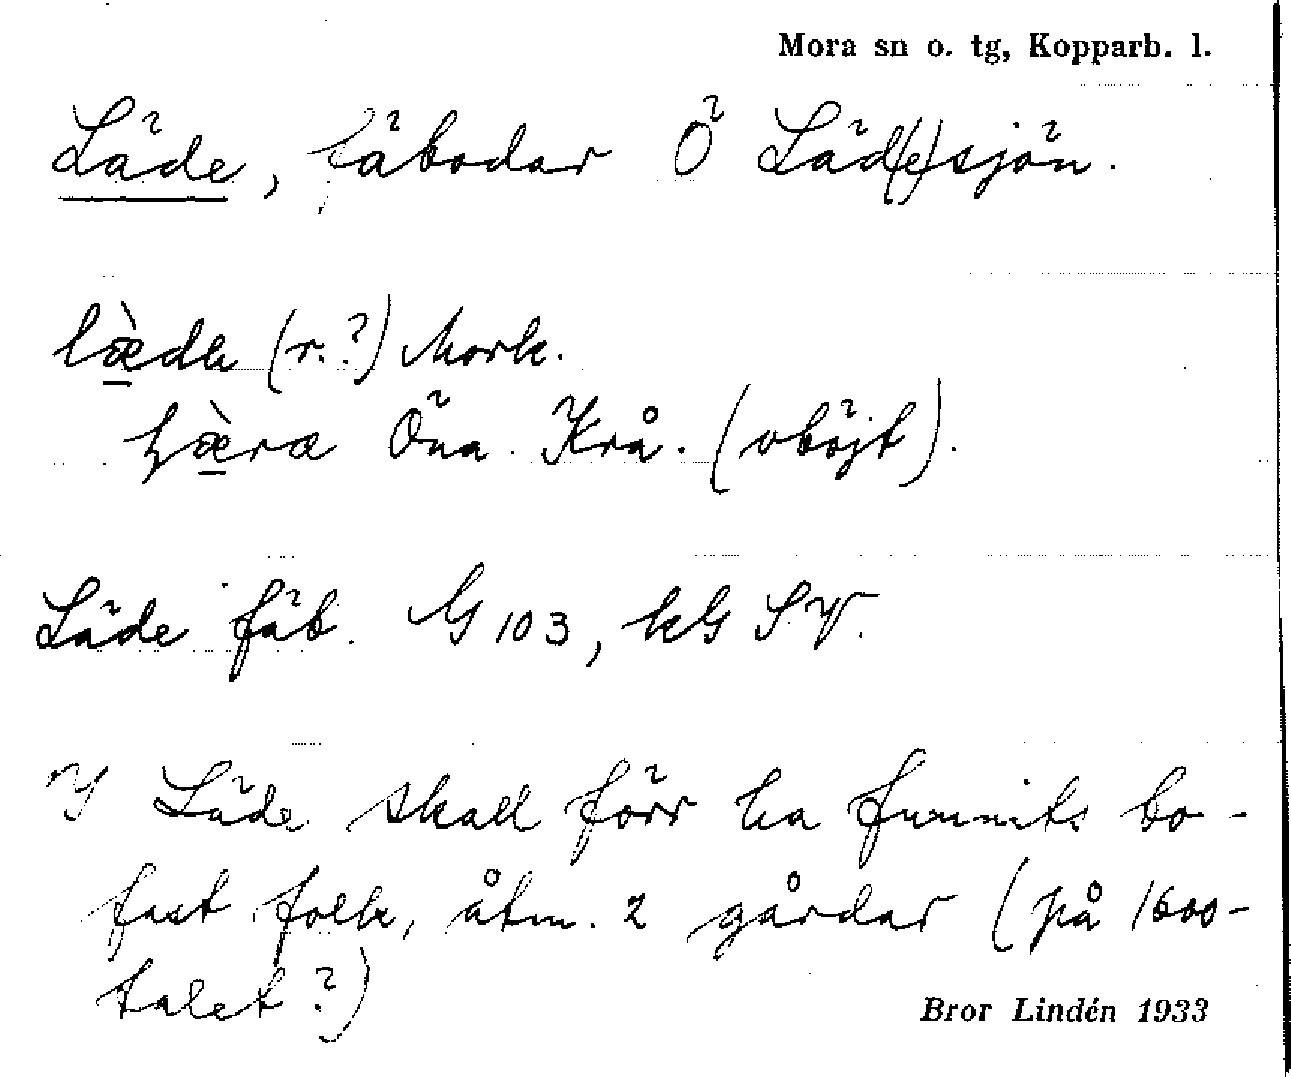 Mora sn o. tg, Kopparb. l.
Läde, fäbodar Ö Läd(e)sjön.
(r.?) Mork.
Öna. Krå. (oböjt).
Läde fäb. G 103, kG SV.
I Läde skall förr ha funnits bo-
fast folk, åtm. 2 gårdar (på 1600-
talet?)
Bror Lindén 1933